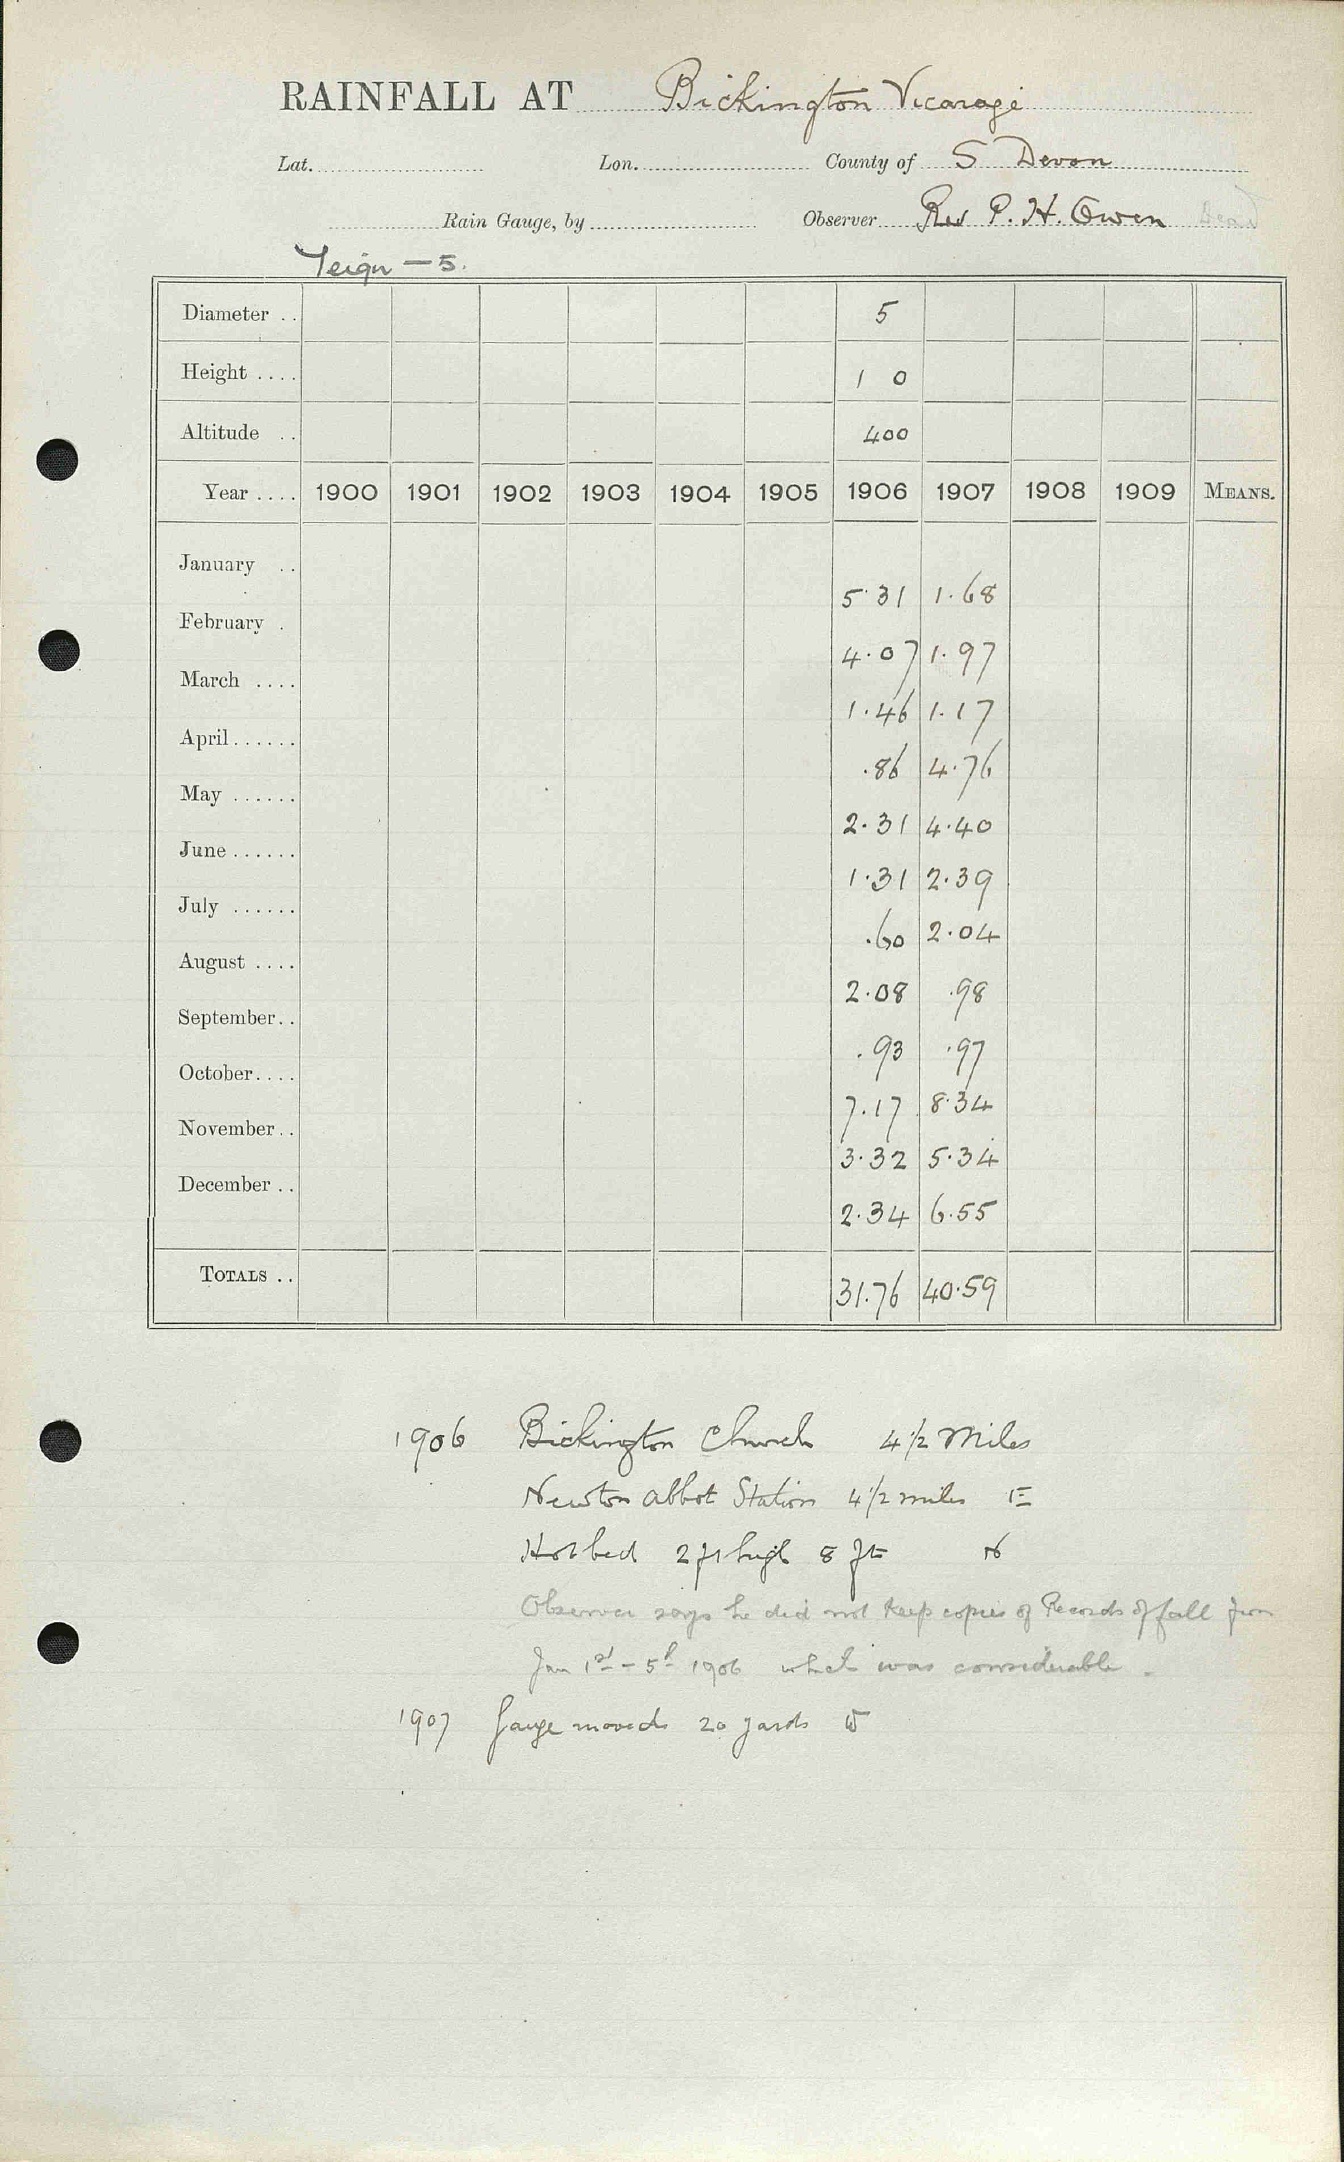 RAINFALL AT Bickington Vicarage
Lat. Lon. County of S Devon
Rain Gauge, by Observer Rev P. H. Owen Dead
Teign — 5.
Diameter .. 5
Height .... 1 0
Altitude .. 400
Year .... 1900 1901 1902 1903 1904 1905 1906 1907 1908 1909 MEANS.
January .. 5.31 1.68
February . 4.07 1.97
March .... 1.46 1.17
April...... .86 4.76
May ...... 2.31 4.40
June...... 1.31 2.39
July ...... .60 2.04
August .... 2.08 .98
September.. .93 .97
October.... 7.17 8.34
November.. 3.32 5.34
December .. 2.34 6.55
TOTALS .. 31.76 40.59
1906 Bickington Church 4½ Miles
Newton Abbot Station 4½ miles E
Hotbed 2 ft high 8 ft N
Observer says he did not keep copies of Records of fall from
Jan 1st – 5th 1906 which was considerable.
1907 Gauge moved 20 yards W